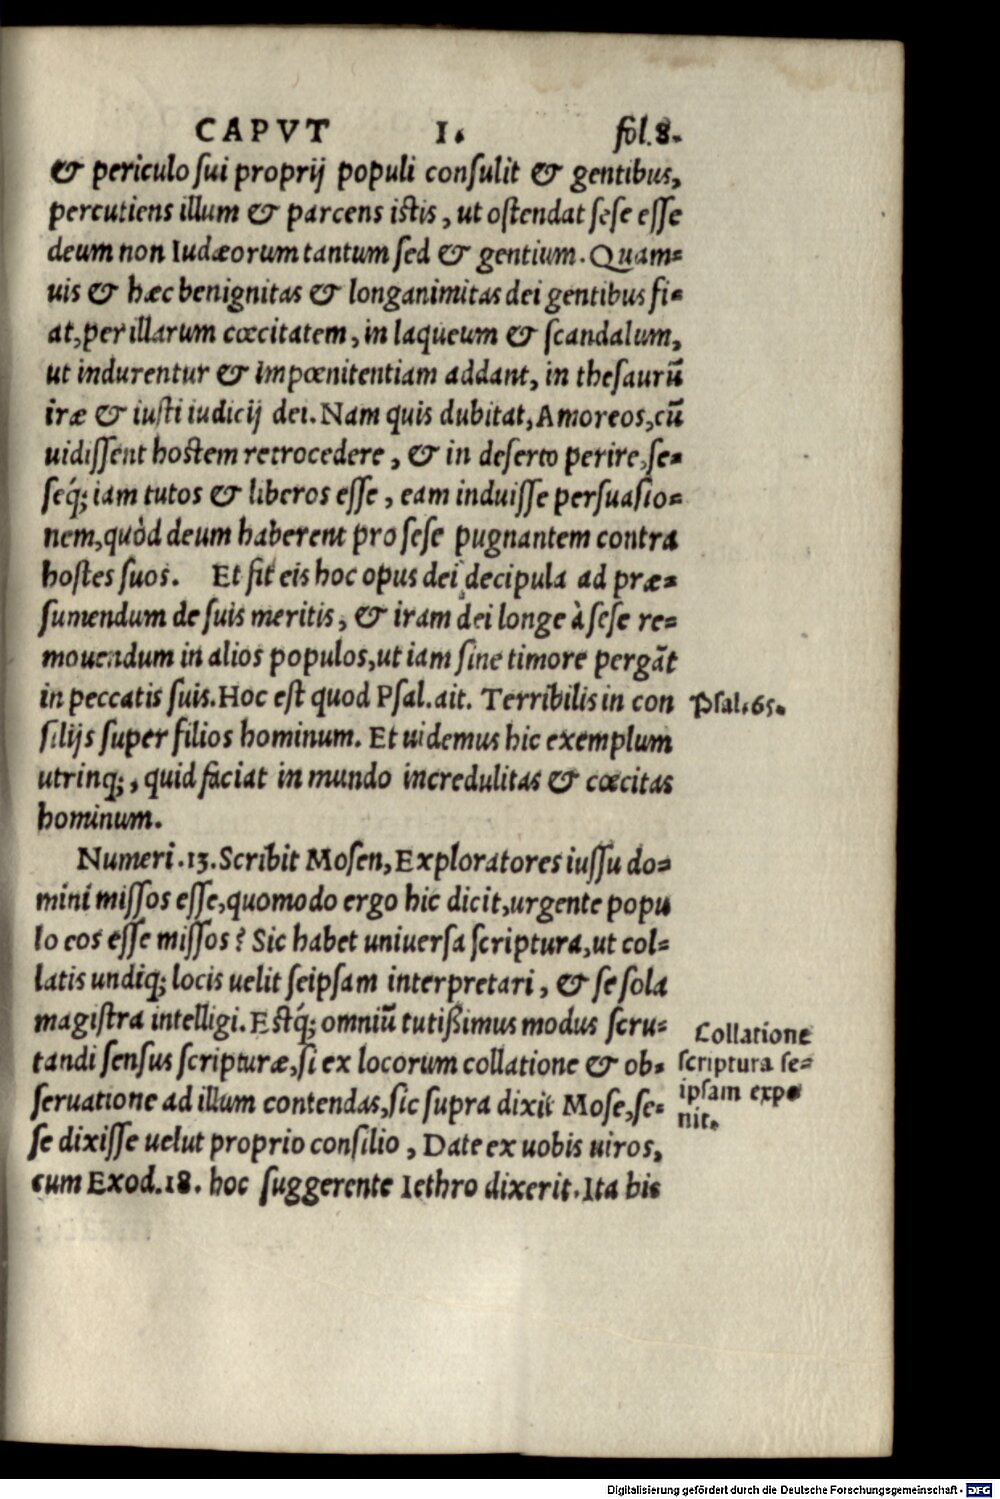 CAPVT I. fol.8.
& periculo sui proprij populi consulit & gentibus,
percutiens illum & parcens istis, ut ostendat sese esse
deum non Iudæorum tantum sed & gentium. Quam-
uis & hæc benignitas & longanimitas dei gentibus fi-
at, per illarum cœcitatem, in laqueum & scandalum,
ut indurentur & impœnitentiam addant, in thesaurū
iræ & iusti iudicij dei. Nam quis dubitat, Amoreos, cū
uidissent hostem retrocedere, & in deserto perire, se-
seq́; iam tutos & liberos esse, eam induisse persuasio-
nem, quòd deum haberent pro sese pugnantem contra
hostes suos. Et fit eis hoc opus dei decipula ad præ-
sumendum de suis meritis, & iram dei longe à sese re-
mouendum in alios populos, ut iam sine timore pergāt
in peccatis suis. Hoc est quod Psal. ait. Terribilis in con
Psal.65.
silijs super filios hominum. Et uidemus hic exemplum
utrinq;, quid faciat in mundo incredulitas & cœcitas
hominum.
Numeri.13. Scribit Mosen, Exploratores iussu do-
mini missos esse, quomodo ergo hic dicit, urgente popu
lo eos esse missos? Sic habet uniuersa scriptura, ut col-
latis undiq; locis uelit seipsam interpretari, & se sola
magistra intelligi. Estq́; omniū tutißimus modus scru-
tandi sensus scripturæ, si ex locorum collatione & ob-
seruatione ad illum contendas, sic supra dixit Mose, se-
se dixisse uelut proprio consilio, Date ex uobis uiros,
cum Exod.18. hoc suggerente Iethro dixerit. Ita his
Collatione
scriptura se-
ipsam expo
nit.
Digitalisierung gefördert durch die Deutsche Forschungsgemeinschaft - DFG